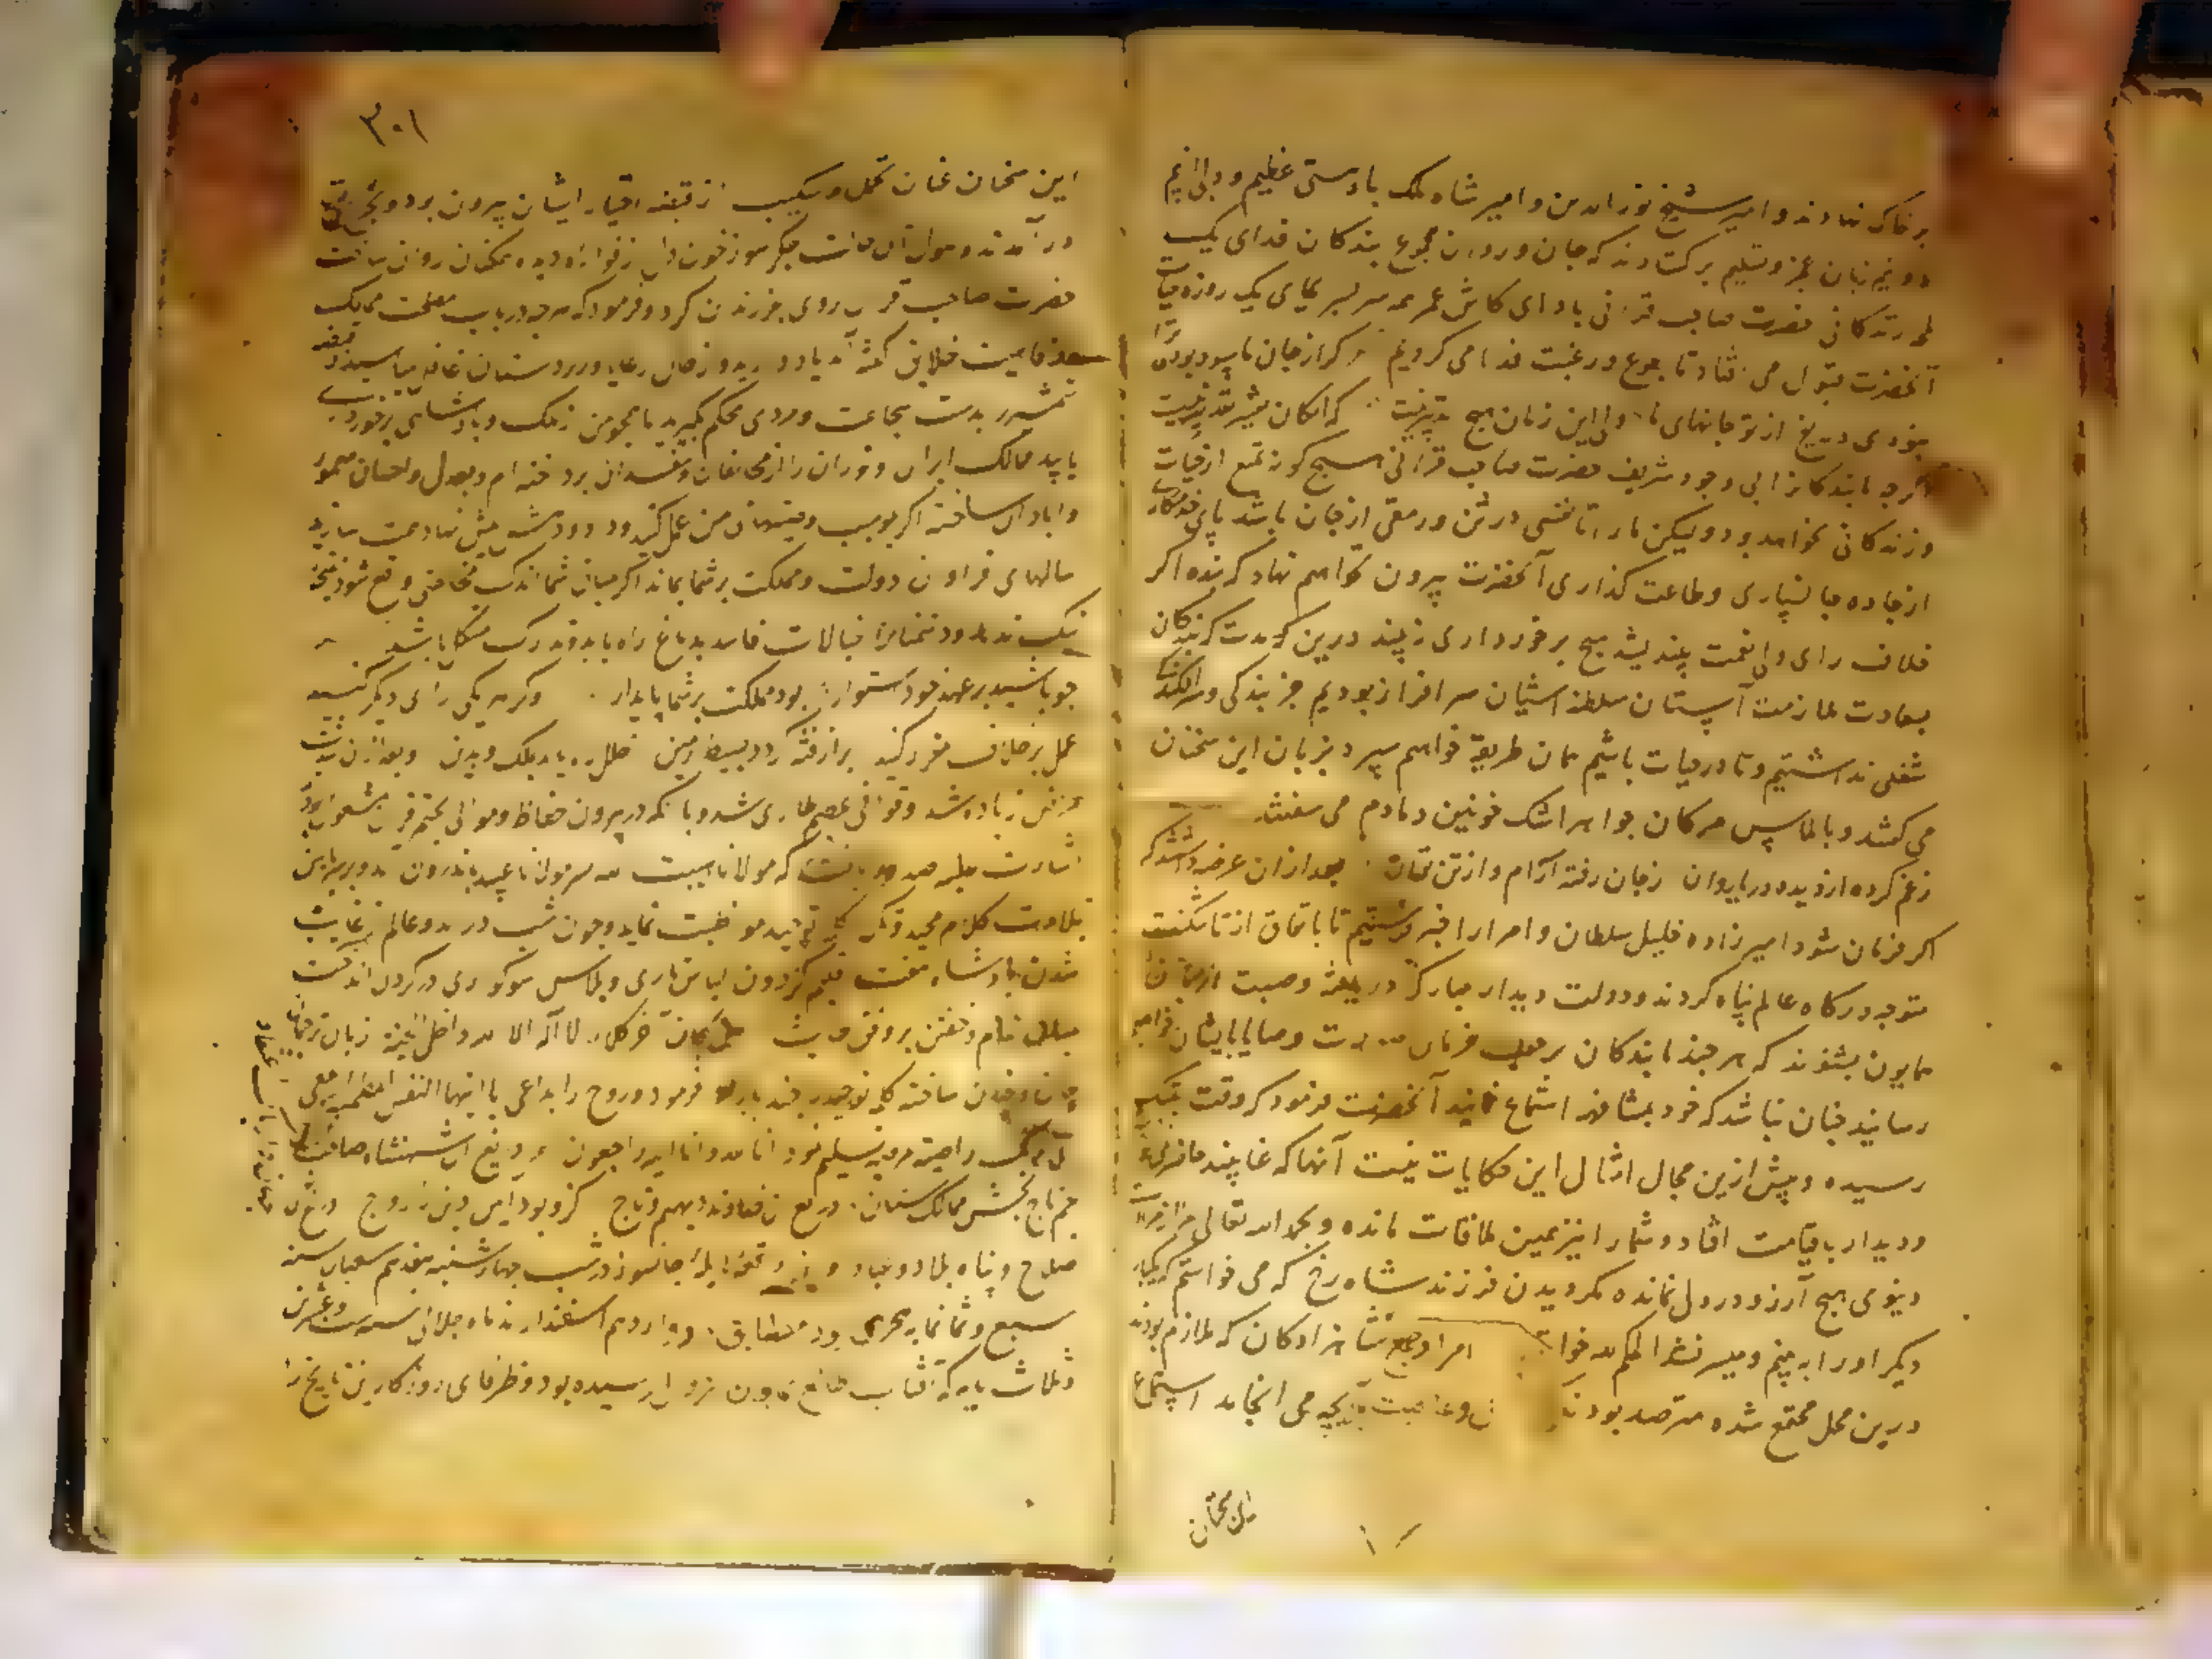 بر خاک نهادند و امیر شیخ نورالدین و امیر شاه ملک با دهشتی عظیم و دلی از غم
دو نیم زبان عجز و تسلیم برکشادند که جان و روان مجموع بندکان فدای یک
لمحه زندکانی حضرت صاحب قرانی باد ای کاش عمر همه سر بسر بجای یک روزه حیات
آنحضرت قبول می افتاد تا بطوع و رغبت فدا می کردیم که از جان ما سود بودی ترا
نبودی دریغ از تو جانهای ما ولی این زمان هیچ تدبیر نیست که امکان تغییر تقدیر نیست
اکرچه ما بندکانرا بی وجود شریف حضرت صاحب قرانی هیچ کونه تمتع از حیات
و زندکانی نخواهد بود و لیکن ما را تا نفسی در تن و رمقی از جان باشد پای
از جاده جانسپاری و طاعت کذاری آنحضرت بیرون نخواهیم نهاد که بنده اکر
خلاف رای ولی نعمت پسندیشد هیچ برخورداری نبیند درین که مدت که بندکان
بسعادت ملازمت آستان سلطنت آشیان سرافراز بودیم جز بندکی و
شغلی نداشتیم و تا در حیات باشیم همان طریقه خواهیم سپرد بزبان این سخنان
می کفتند و بالماس مژکان جواهر اشک خونین دمادم می سفتند
ز غم کرده از دیده دریا روان ز جان رفته آرام و از تن توان بعد از ان عرضه داشتند که
اکر فرمان شود امیرزاده خلیل سلطان و امرا را خبر فرستیم تا باتفاق از تاشکنت
متوجه درکاه عالم پناه کردند و دولت دیدار مبارک دریافته وصیت از زبان
همایون بشنوند که هرچند ما بندکان بر حسب فرمان وصایا بایشان خواهیم
رسانید چنان نباشد که خود بمشافهه استماع نمایند آنحضرت فرمود که وقت تنک
رسیده و بیش ازین مجال امثال این حکایات نیست آنها که غایبند
و دیدار با قیامت افتاد و شما را نیز همین ملاقات مانده و بحمد الله تعالی مرا از
دنیوی هیچ آرزو در دل نمانده مکر دیدن فرزند شاه رخ که می خواستم که یکبار
دیکر او را به بینم و میسر نشد الحکم لله امرا و جمیع شاهزادکان که ملازم بودند
درین محل مجتمع شده مترصد بودند می انجامد استماع
این سخنان
۳۰۱
این سخنان عنان تحمل و شکیب از قبضه اختیار ایشان بیرون برد و
درآمدند جکر سوز خون دل از فواره دیده همکنان روان ساخت
حضرت صاحب قران روی بفرزندان کرد و فرمود که هرچه در باب مصلحت ممالک
خلایق کفته ام یاد دارید و از حال رعایا و زیردستان غافل مباشید و قبضه
شمشیر بدست شجاعت و مردی محکم کیرید تا همچو من از ملک و پادشاهی برخوردار
یابید ممالک ایران و توران را از مخالفان و مفسدان پرداخته ام و بعدل و احسان معمور
و آبادان ساخته اکر بموجب وصیتهای من عمل کنید و داد و دهش پیش نهاد همت سازید
سالهای فراوان دولت و مملکت بر شما بماند اکر میان شما اندک مخالفتی واقع شود نتیجه
نیک ندهد و دشمنانرا خیالات فاسد بدماغ راه یابد و تدارک مشکل باشد
چو باشید بر عهد خود استوار بود مملکت بر شما پایدار وکر هر یکی رای دیکر کنید
عمل بر خلاف مقرر کنید پر از فتنه کردد بسیط زمین خلل ره یابد بملک و بدین و بعد از ان
مرض زیاده شد و فواقی عظیم طاری شد و با آنکه در بیرون حفاظ و موالی بختم قرآن مشغول بودند
اشارت علیه صدور یافت که مولانا هیبت الله پسر مولانا عبید باندرون آمد و بر بالین
بتلاوت کلام مجید و ذکر کلمه توحید مواظبت نماید و چون شب درآمد و عالم
شدن پادشاه هفت اقلیم کردون لباس تاری و پلاس سوکواری در کردن انداخت
میان شام و خفتن بر وفق حدیث من کان آخر کلامه لا اله الا الله دخل الجنة زبان
ساخته کلمه توحید چند بار فرمود و روح را بداعی یا ایتها النفس المطمئنة ارجعی
الی ربک راضیة مرضیة تسلیم نمود انا لله و انا الیه راجعون دریغ آن شهنشاه صاحبقران
جم تاج بخش ممالک ستان دریغ آن خداوند دیهیم و تاج کزو بود این دین را رواج
صلاح و پناه بلاد و عباد و این واقعه هایله جانسوز در شب چهارشنبه هفدهم شعبان سنه
سبع و ثمانمایه هجری بود مطابق دوازدهم اسفندارمذ ماه جلالی سنه ست و عشرین
و ثلاث مایه که آفتاب رسیده بود و ظرفای روزکار این تاریخ را